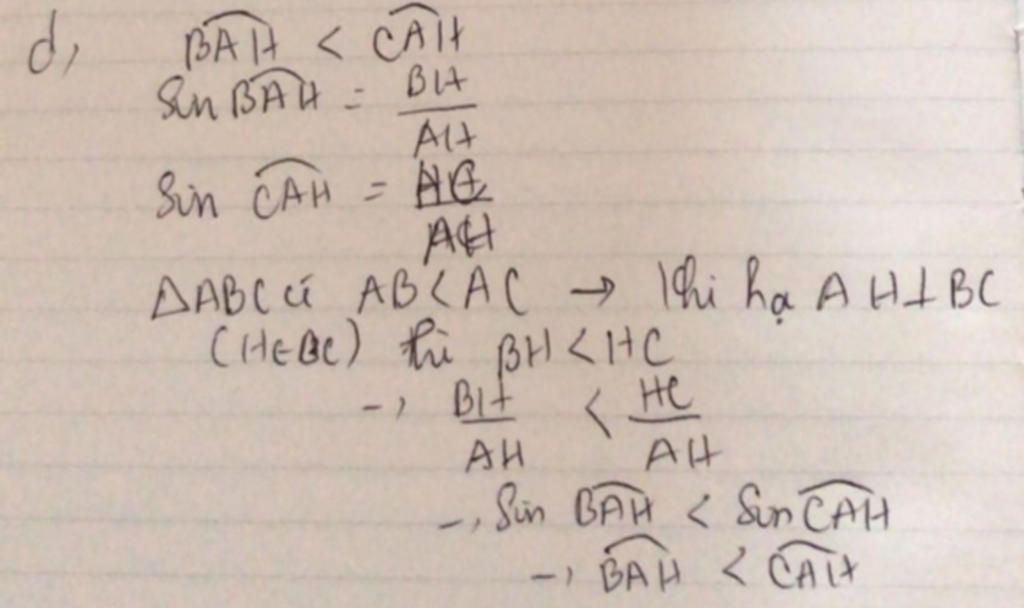 d, BAH < CAH
Sin BAH = BH/AH
Sin CAH = HC/AH
△ABC có AB < AC → Khi hạ AH⊥BC
(H∈BC) thì BH < HC
→ BH/AH < HC/AH
→ Sin BAH < Sin CAH
→ BAH < CAH